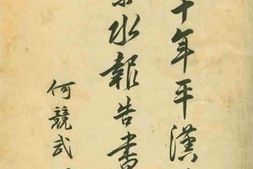 十年平漢
水報告書
何競武